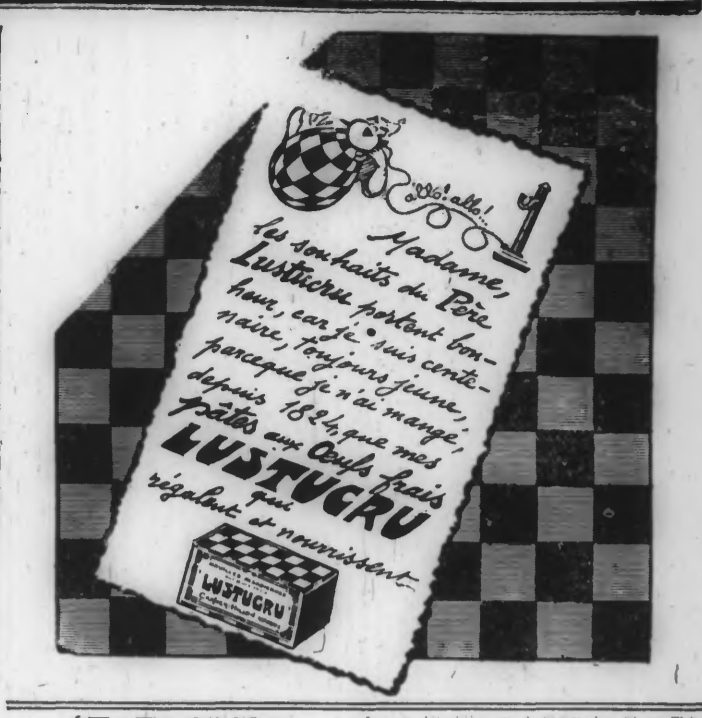 allo! allo!..
Madame,
les souhaits du Père
Lustucru portent bon-
heur, car je suis cente-
naire, toujours jeune,
parceque je n'ai mangé,
depuis 1824, que mes
pâtes aux Œufs frais
LUSTUCRU
qui
régalent et nourrissent
LUSTUCRU